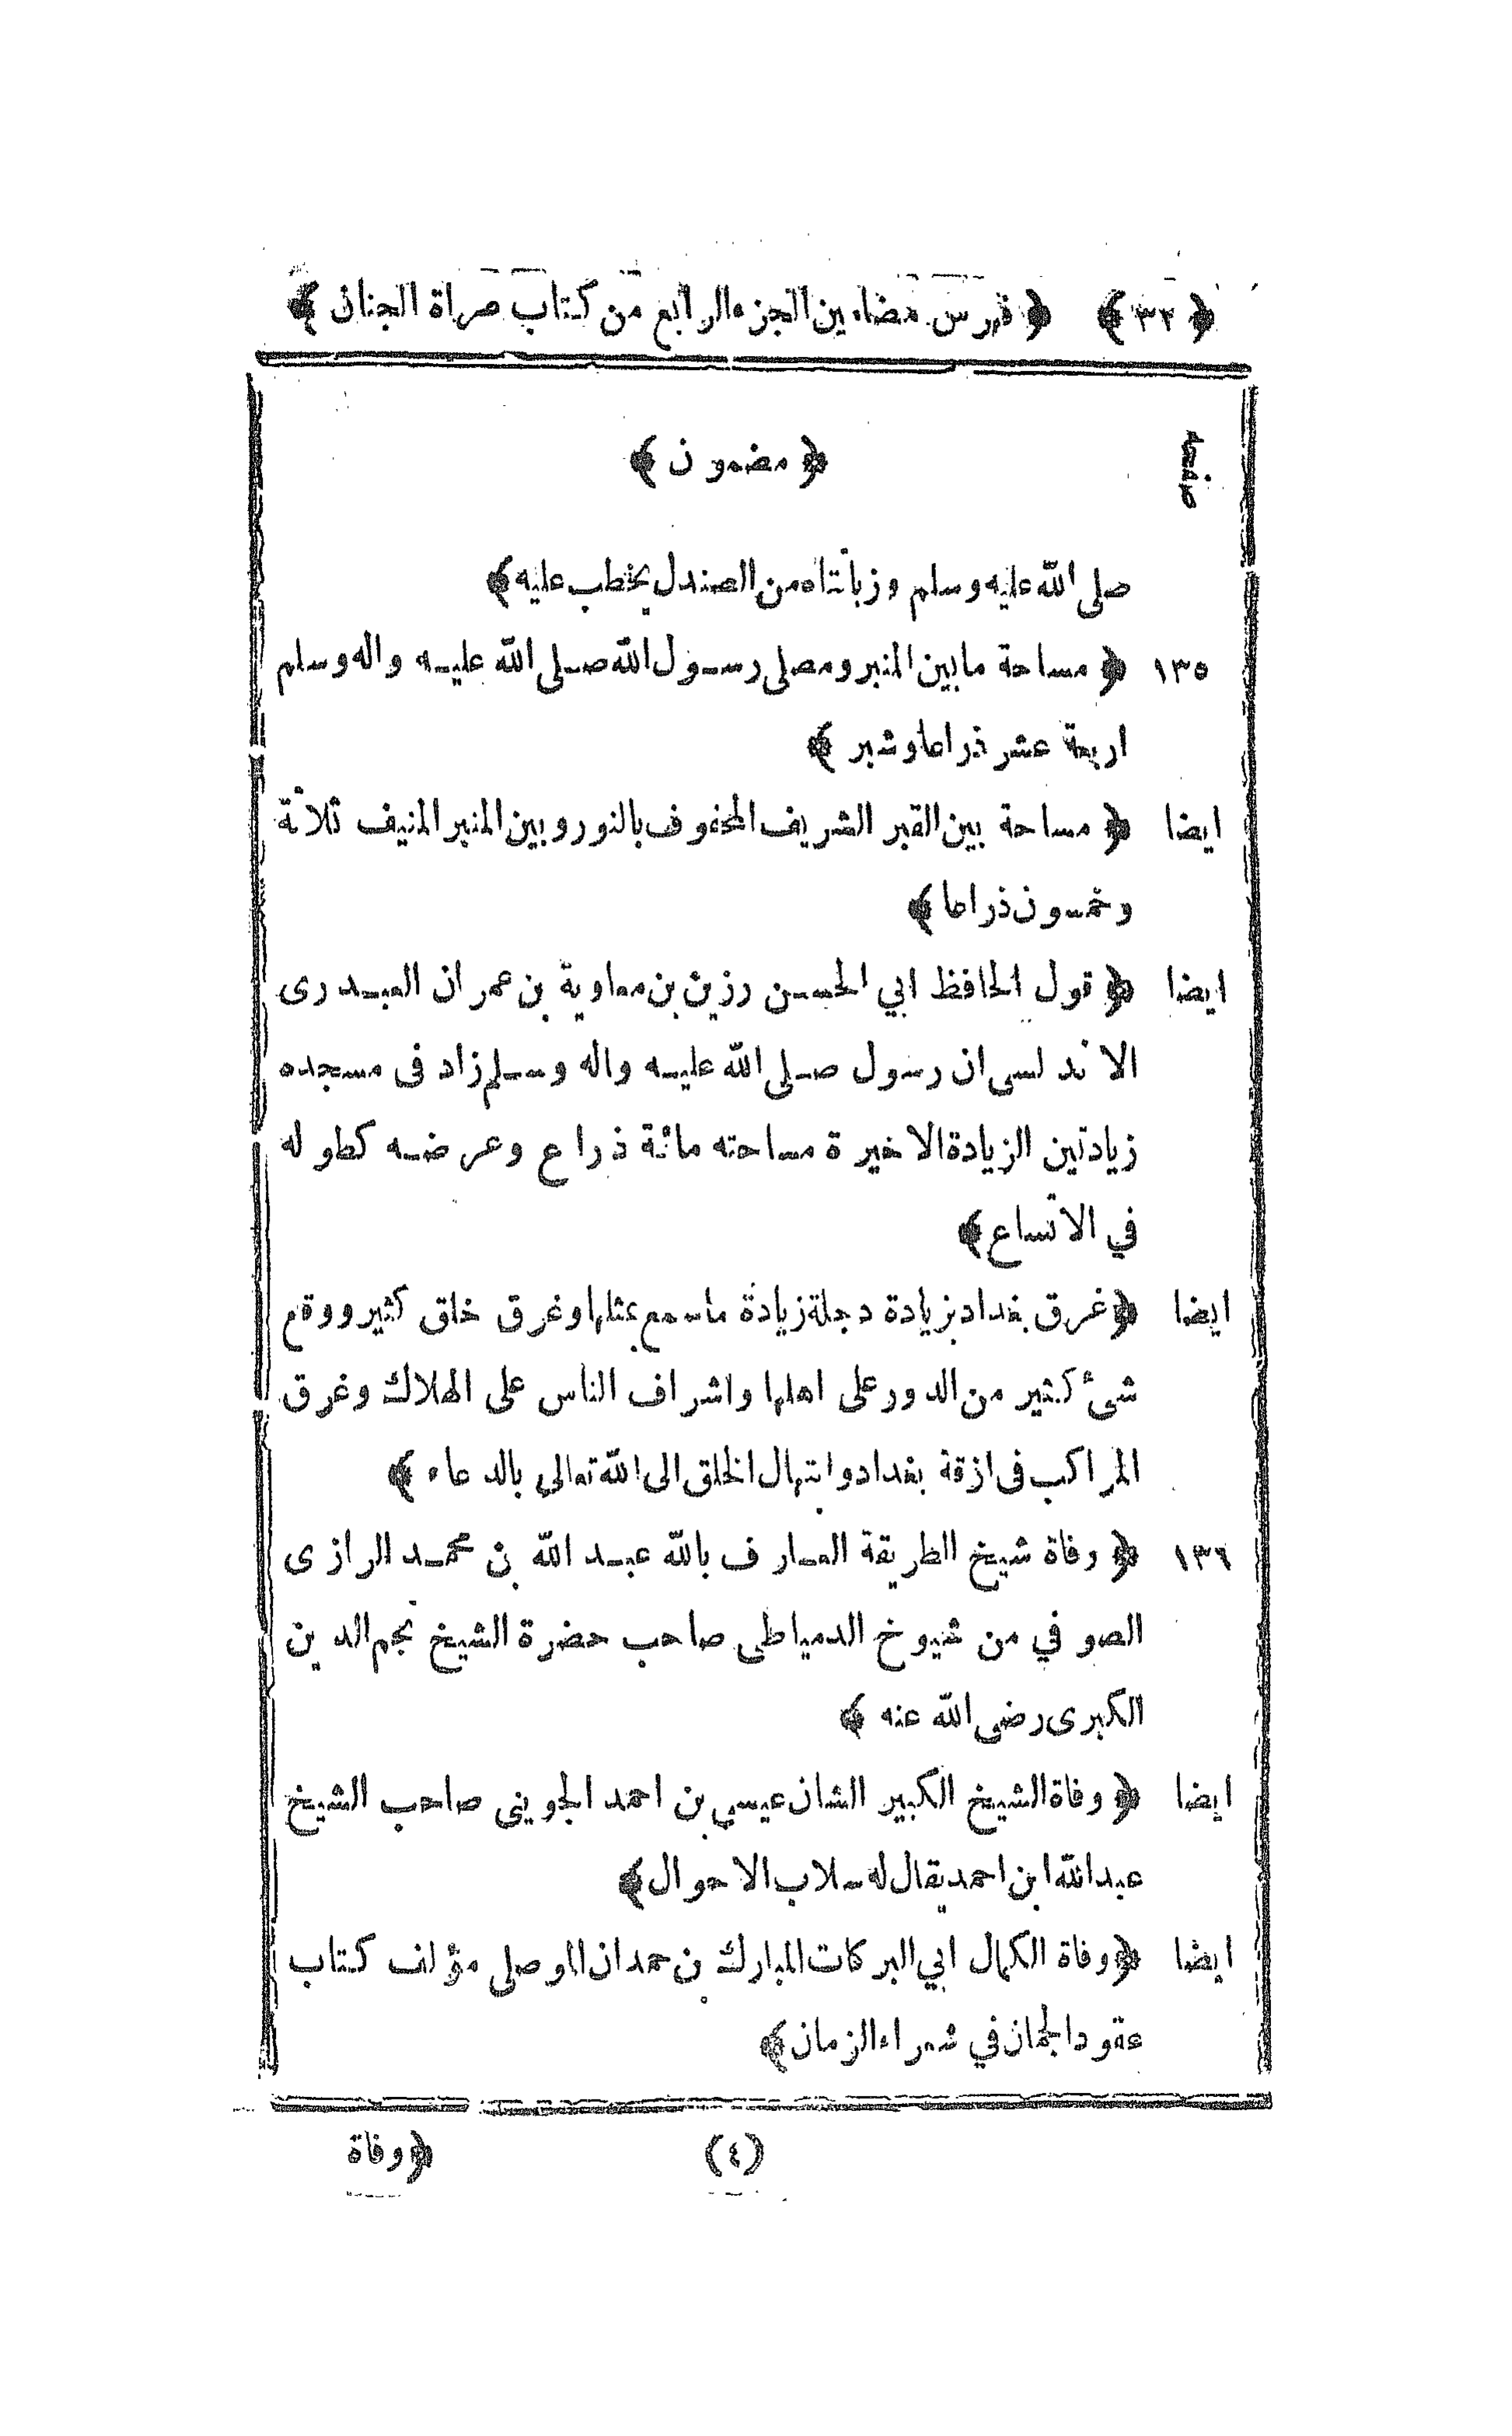 ﴿ ٣٢ ﴾ ﴿ فهرس مضامين الجزء الرابع من كتاب مرآة الجنان ﴾
صفحه ﴿ مضمون ﴾
صلى الله عليه وسلم وزبانتاه من الصندل يخطب عليه ﴾
١٣٥ ﴿ مساحة مابين المنبر ومصلى رسول الله صلى الله عليه واله وسلم
اربعة عشر ذراعا وشبر ﴾
ايضا ﴿ مساحة بين القبر الشريف المحفوف بالنور وبين المنبر المنيف ثلاثة
وخمسون ذراعا ﴾
ايضا ﴿ قول الحافظ ابي الحسن رزين بن معاوية بن عمران العبدرى
الاندلسى ان رسول صلى الله عليه واله وسلم زاد فى مسجده
زيادتين الزيادة الاخيرة مساحته مائة ذراع وعرضه كطوله
في الاتساع ﴾
ايضا ﴿ غرق بغداد بزيادة دجلة زيادة ماسمع بمثلها وغرق خلق كثير ووقع
شئ كثير من الدور على اهلها واشراف الناس على الهلاك وغرق
المراكب فى ازقة بغداد وابتهال الخلق الى الله تعالى بالدعاء ﴾
١٣٦ ﴿ وفاة شيخ الطريقة العارف بالله عبد الله بن محمد الرازى
الصوفي من شيوخ الدمياطى صاحب حضرة الشيخ نجم الدين
الكبرى رضى الله عنه ﴾
ايضا ﴿ وفاة الشيخ الكبير الشان عيسى بن احمد الجوينى صاحب الشيخ
عبدالله ابن احمد يقال له سلاب الاحوال ﴾
ايضا ﴿ وفاة الكمال ابي البركات المبارك بن حمدان الموصلى مؤلف كتاب
عقود الجمان في شعراء الزمان ﴾
(٤) ﴿ وفاة